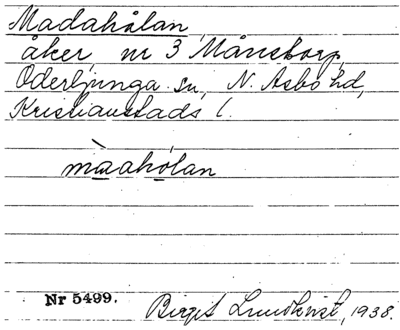 Madahålan,
åker, nr 3 Månstorp,
Oderljunga sn, N. Åsbo hd,
Kristianstads l.
màaholan
Nr 5499.
Birgit Lundkvist, 1938.